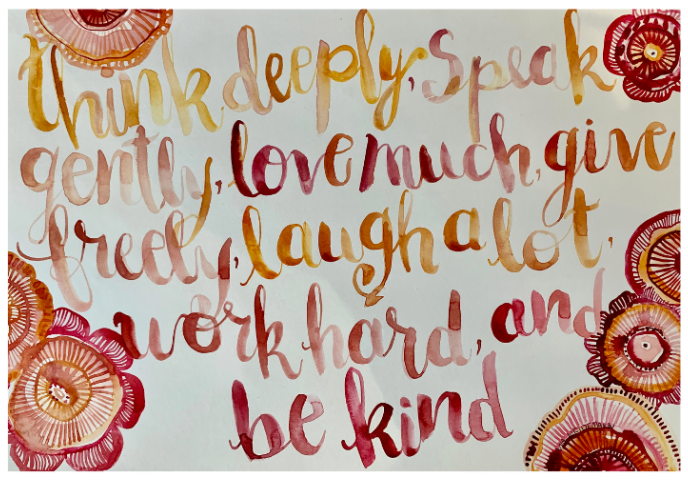 think deeply, Speak
gently, love much, give
freely, laugh a lot,
work hard, and
be kind